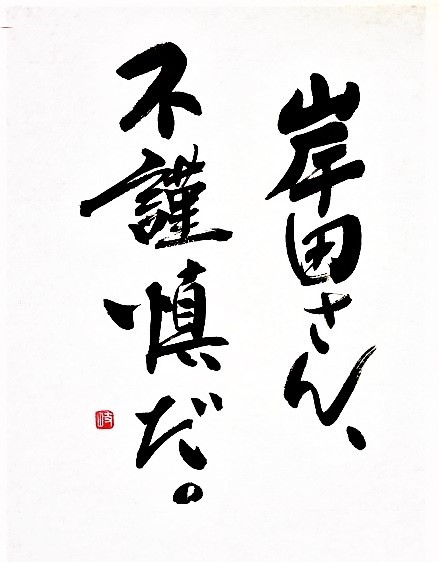 岸田さん、
不謹慎だ。